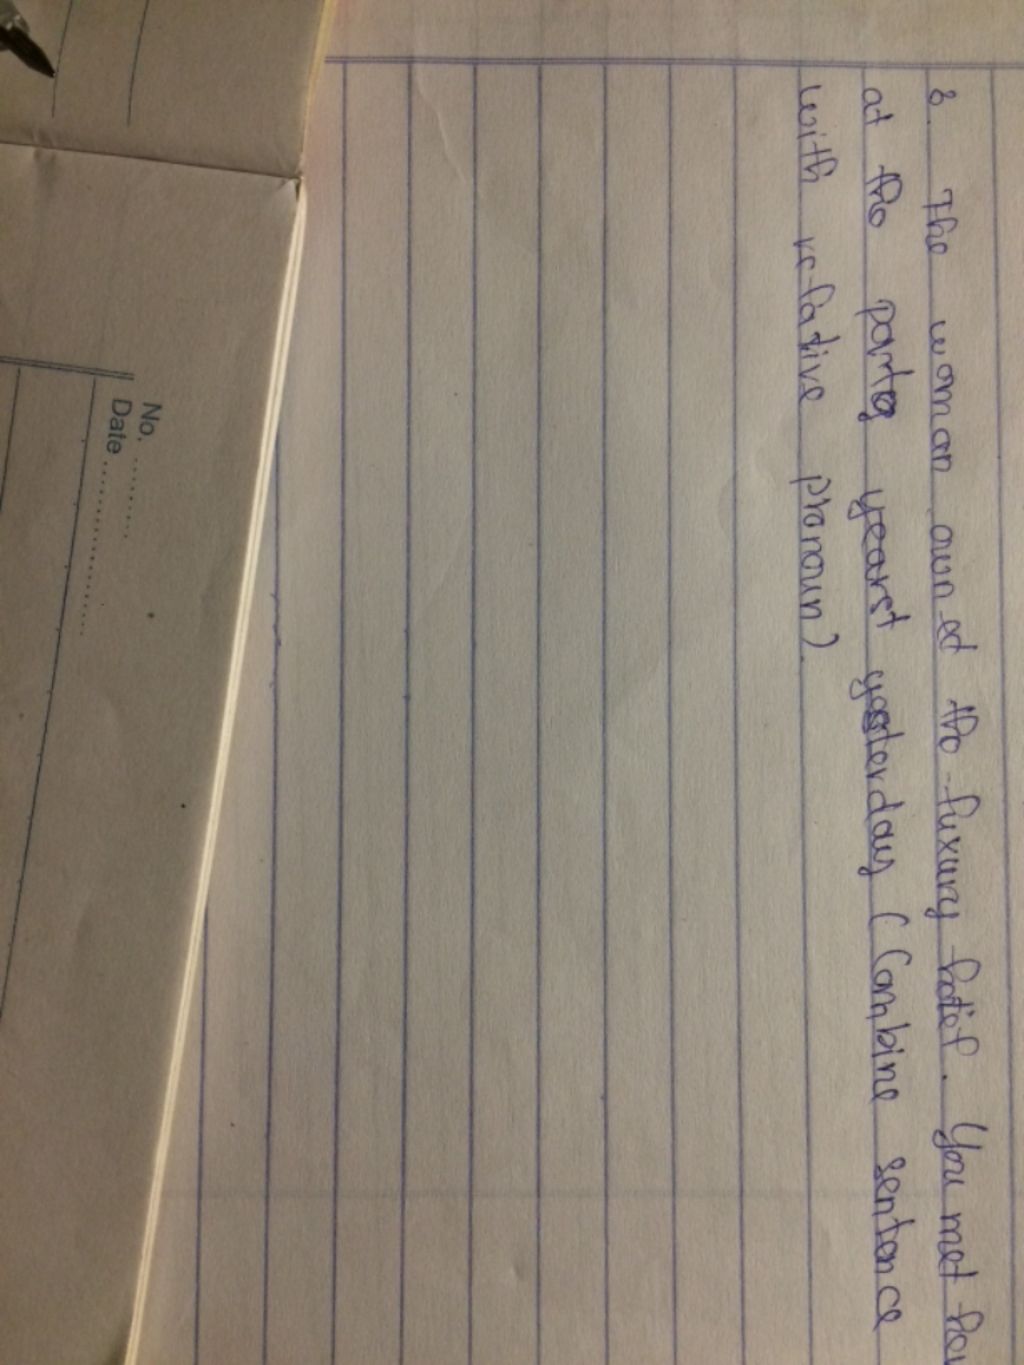 8. The woman owned the luxury hotel. You met her
at the party yearst yesterday (Combine sentence
with relative pronoun)
No. ..........
Date ....................